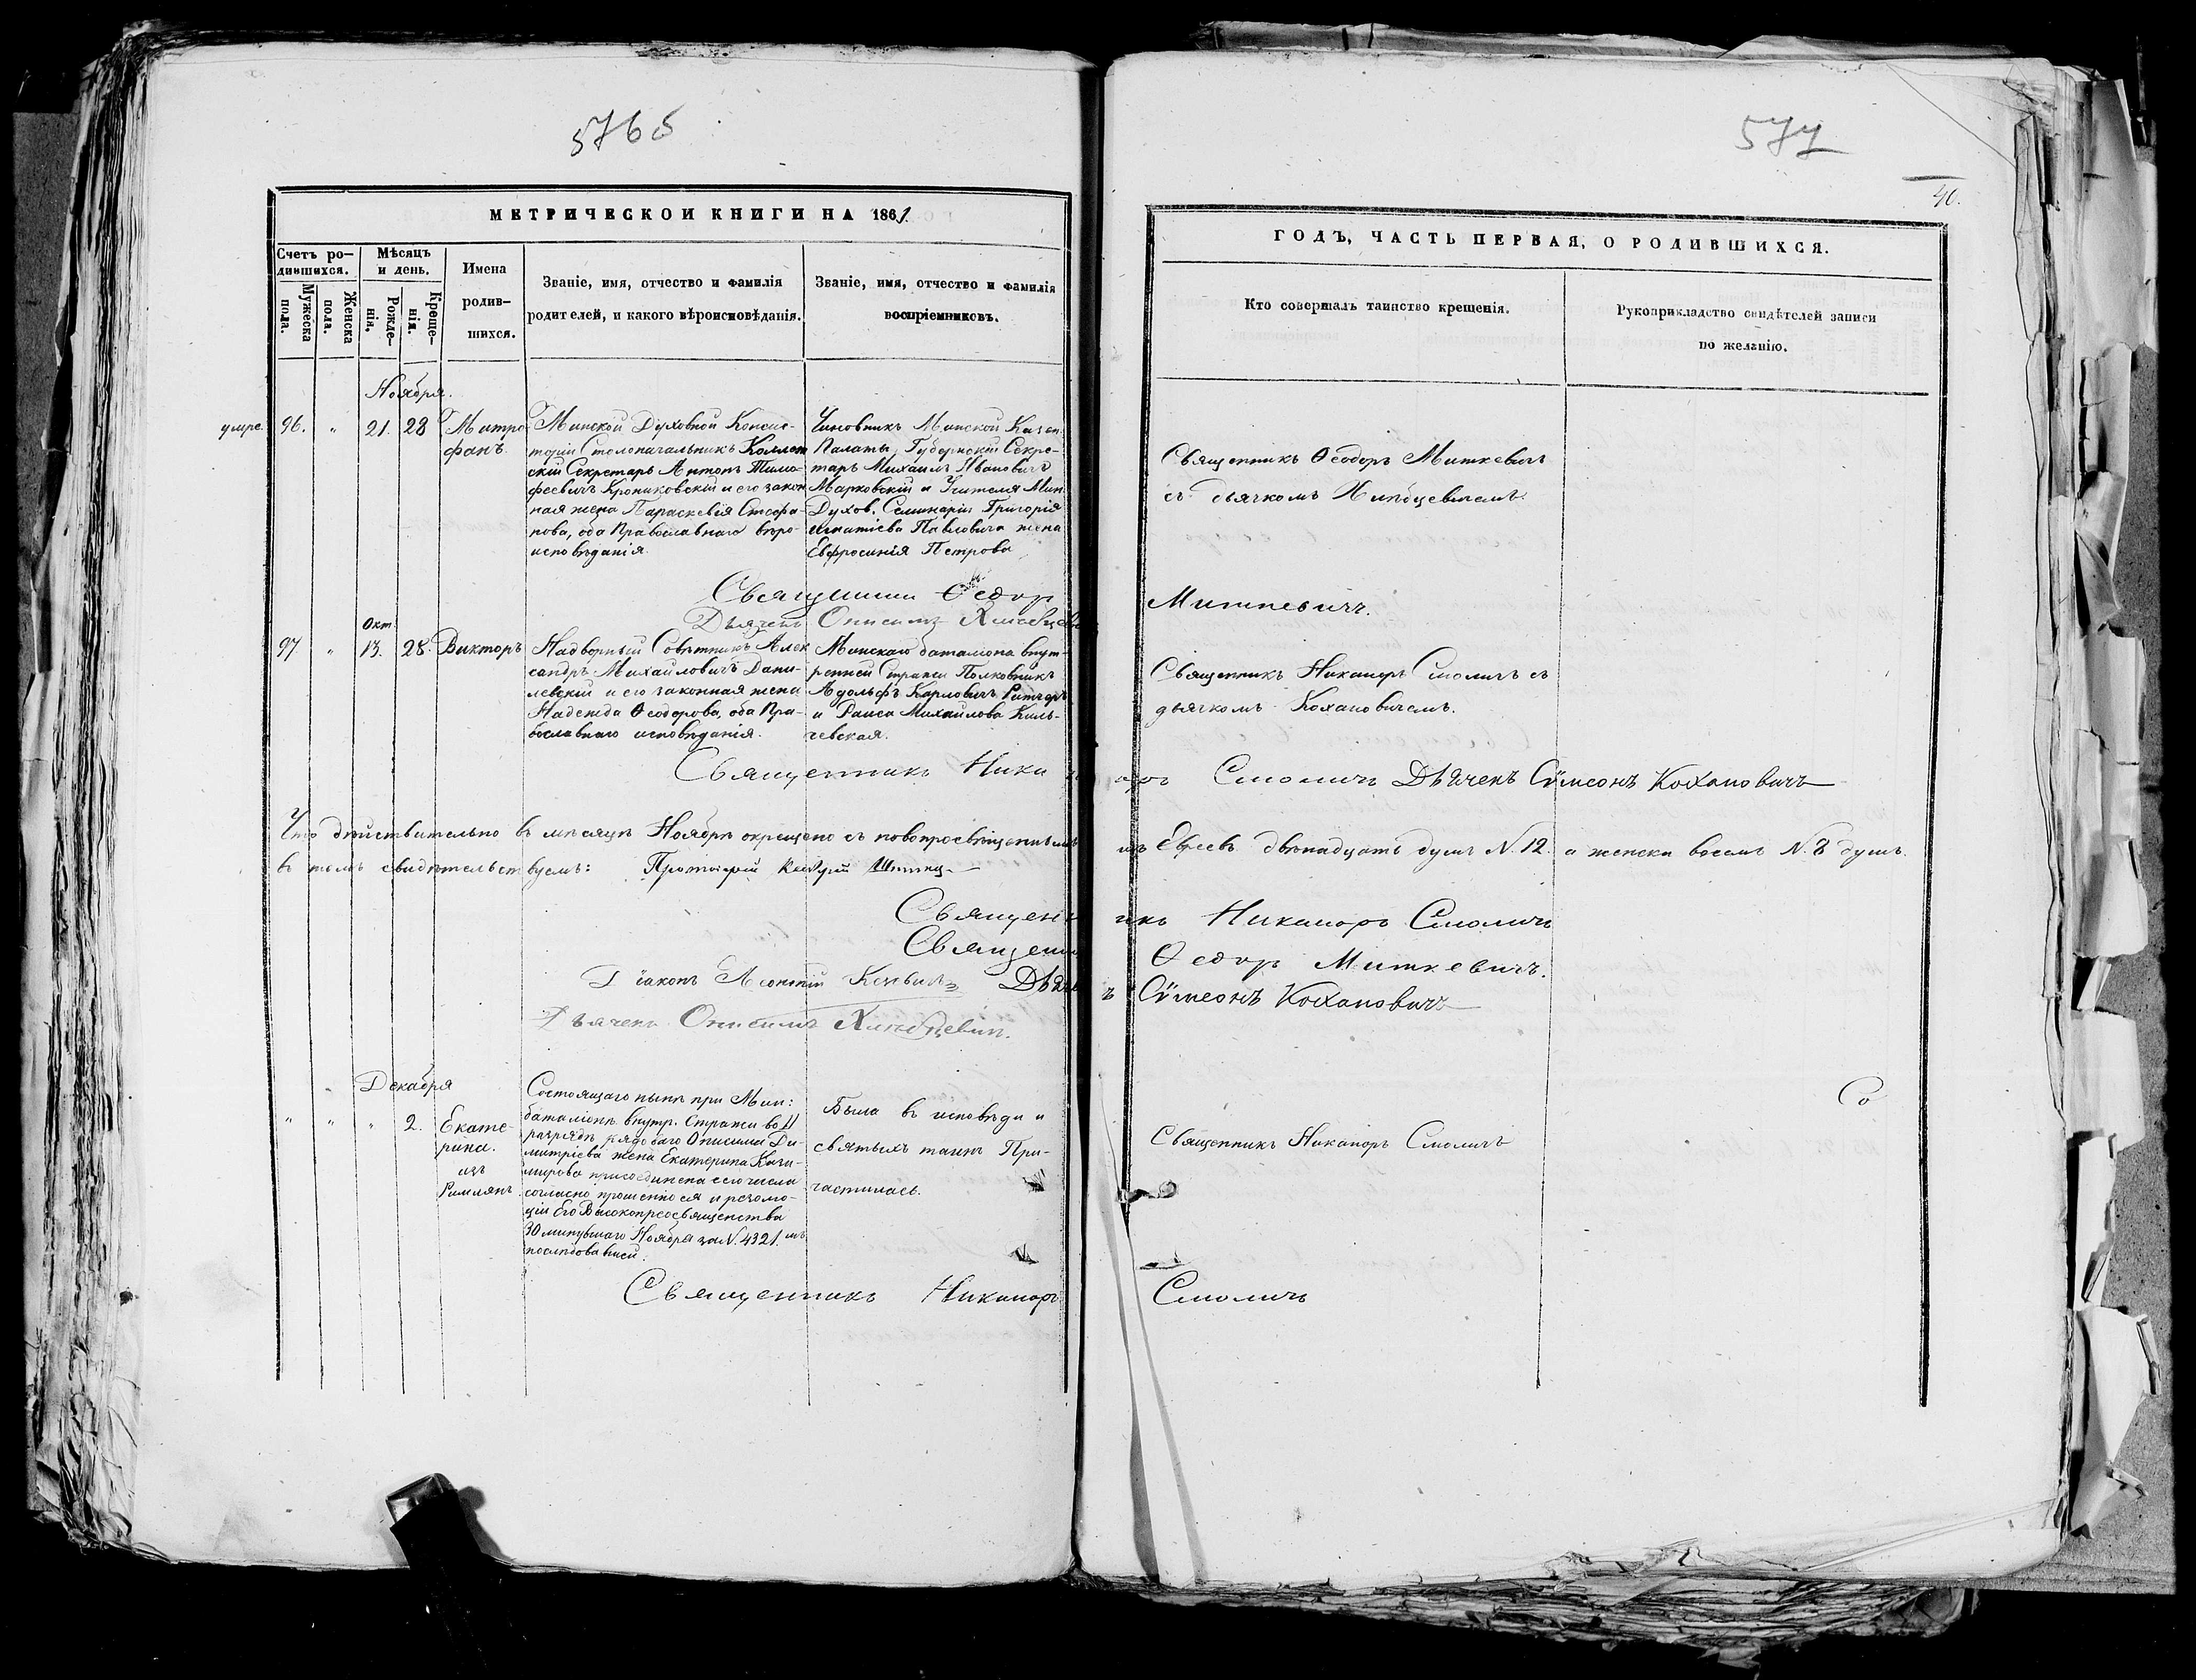 576 б
577
40.
МЕТРИЧЕСКОИ КНИГИ НА 1861.
ГОДЪ, ЧАСТЬ ПЕРВАЯ, О РОДИВШИХСЯ.
Счетъ ро-
дившихся.
Мужеска
пола.
Женска
пола.
Мѣсяцъ
и день.
Рожде-
нія.
Креще-
нія.
Имена
родив-
шихся.
Званіе, имя, отчество и фамилія
родителей, и какого вѣроисповѣданія.
Званіе, имя, отчество и фамилія
воспріемниковъ.
Кто совершалъ таинство крещенія.
Рукоприкладство свидѣтелей записи
по желанію.
Ноября.
умре.
96.
"
21.
28
Митро
фанъ.
Минской Духовной Консис-
торіи Столоначальникъ Коллеж
скій Секретарь Антонъ Тимо-
феевичъ Крониковскій и его закон
ная жена Параскевія Стефа-
нова, оба Православнаго вѣро-
исповѣданія.
Чиновникъ Минской Казен.
Палаты, Губернскій Секре-
тарь Михаилъ Ивановичъ
Марковскій и Учителя Мин.
Духов. Семинаріи Григорія
Игнатіева Павловича жена
Евфросинія Петрова
Священникъ Ѳеодоръ Миткевичъ
съ дьячкомъ Хлѣбцевичемъ.
Священникъ Ѳедоръ Миткевичъ.
Дьячекъ Онисимъ Хлѣбцевичъ
Окт.
97
"
13.
28.
Викторъ
Надворный Совѣтникъ Алек
сандръ Михайловичъ Дани-
левскій и его законная жена
Надежда Ѳеодорова, оба Пра-
вославнаго исповѣданія.
Минскаго баталіона внут-
ренней Стражи Полковникъ
Адольфъ Карловичъ
и Раиса Михайлова Киль-
чевская.
Священникъ Никаноръ Смоличъ съ
дьячкомъ Кохановичемъ.
Священникъ Никаноръ Смоличъ Дьячекъ Сѵмеонъ Кохановичъ
Что дѣйствительно въ мѣсяцѣ Ноябрѣ окрещено съ новопросвѣщеннымъ изъ Евреевъ двѣнадцать душъ N. 12. а женска восемь N. 8 душъ.
въ томъ свидѣтельствуемъ: Протоіерей
Священникъ Никаноръ Смоличъ
Священникъ Ѳедоръ Миткевичъ.
Діаконъ Леонтій Дьячекъ Сѵмеонъ Кохановичъ
Дьячекъ Онисимъ Хлѣбцевичъ.
Декабря
"
"
"
2.
Екате-
рина.
изъ
Римлянъ.
Состоящаго нынѣ при Мин:
баталіонѣ внутр. Стражи во II
разрядѣ рядоваго Онисима Ди-
митріева жена Екатерина Кази-
мирова присоединена сего числа
согласно прошенію ея и резолю-
ціи Его Высокопреосвященства
30 минувшаго Ноября за N. 4321. мъ
послѣдовавшей.
Была въ исповѣди и
святыхъ таинъ При-
частилась.
Священникъ Никаноръ Смоличъ
Со
Священникъ Никаноръ Смоличъ